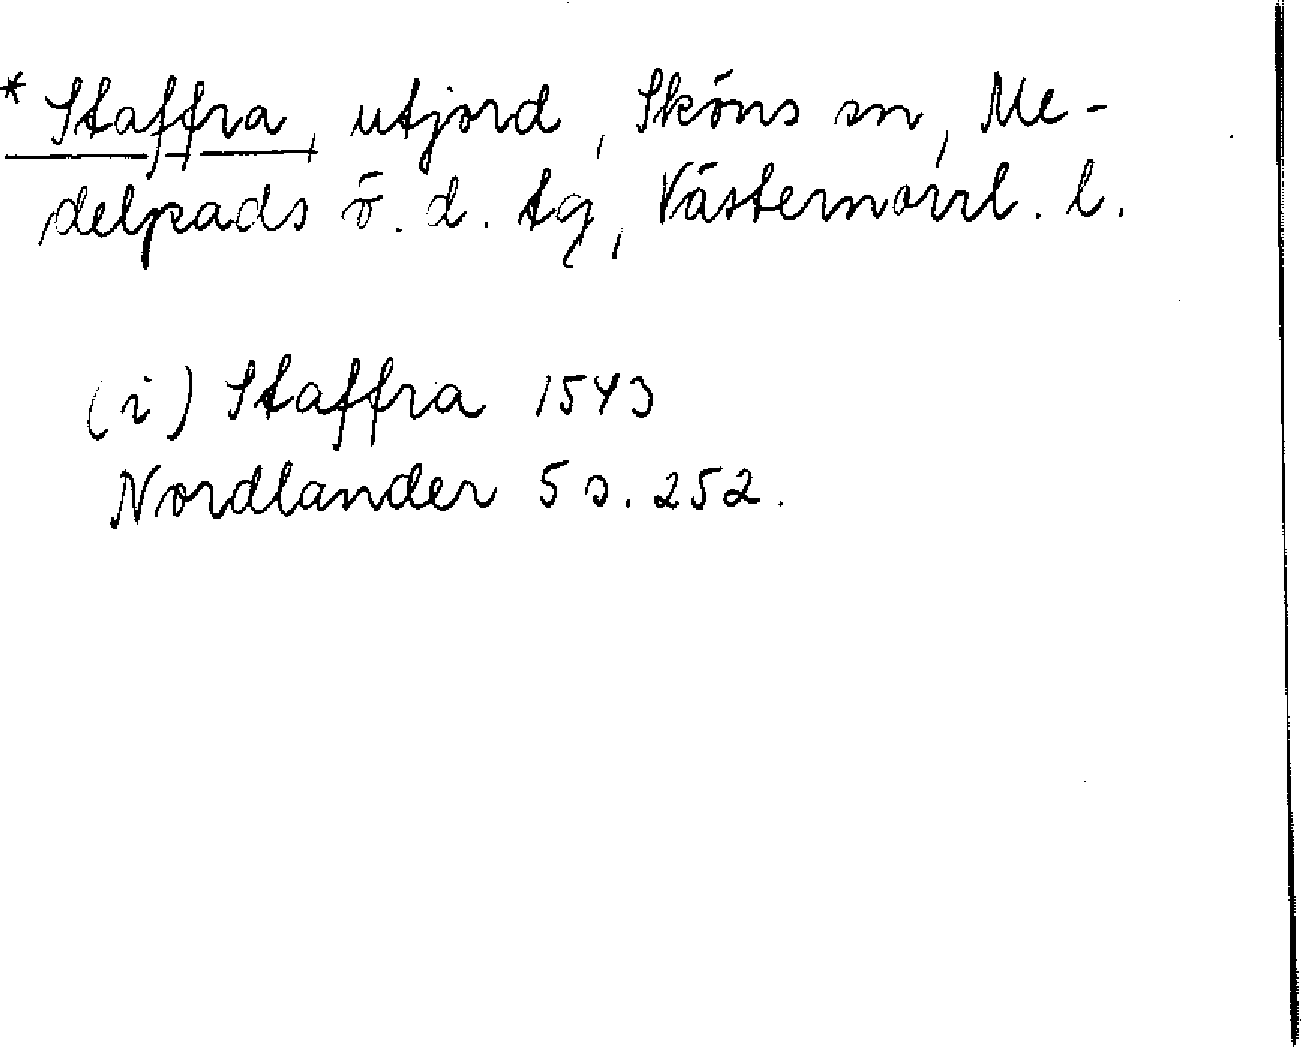 *Staffra, utjord, Sköns sn, Me-
delpads ö. d. tg, Västernorrl. l.
(i) Staffra 1543
Nordlander 5 s. 252.